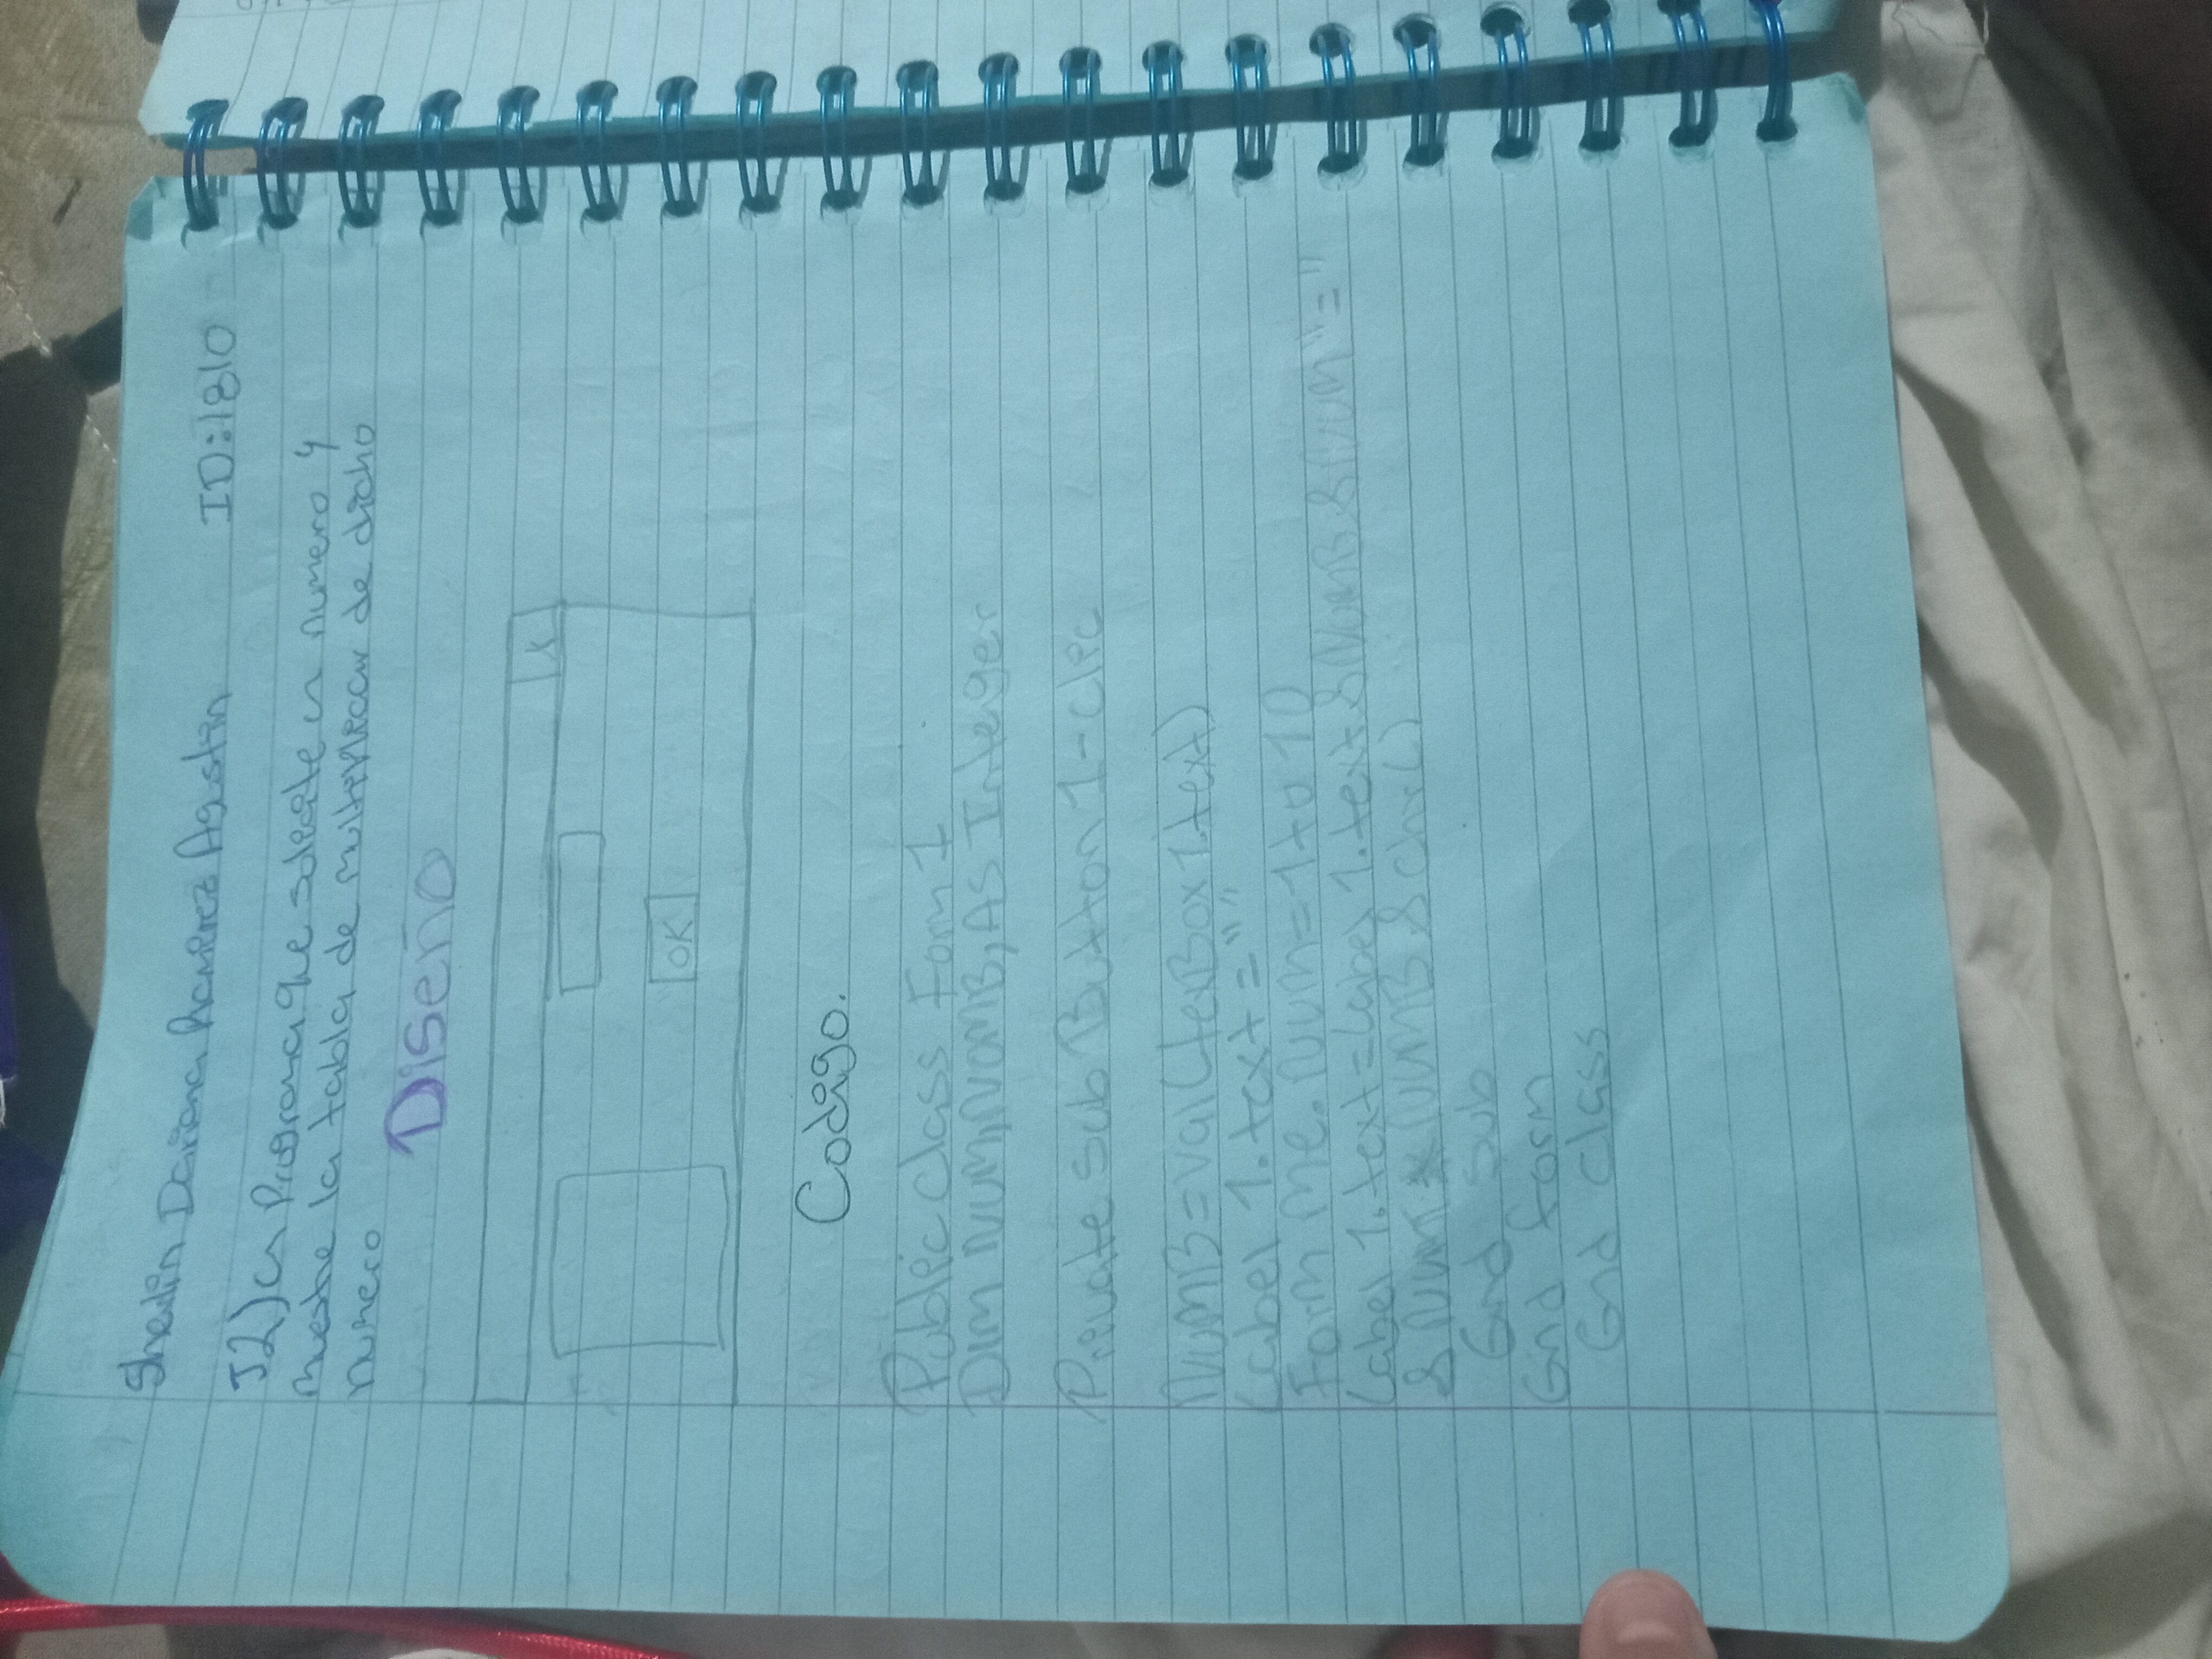 Sheulin Dariana Ramirez Agustin ID:1810
J2) un Programa que solicite un numero y
muestre la tabla de multiplicar de dicho
numero
Diseño
X
OK
Codigo.
Public class Form 1
Dim NUM, NUMB, As Interger
Private sub Button 1-clic
NUMB=val(texBox1.text)
Label 1.text=""
Form me.NUM=1 to 10
Label 1.text=Label 1.text & NUMB & NUM "="
& NUM * NUMB & Chr()
End Sub
End form
End class